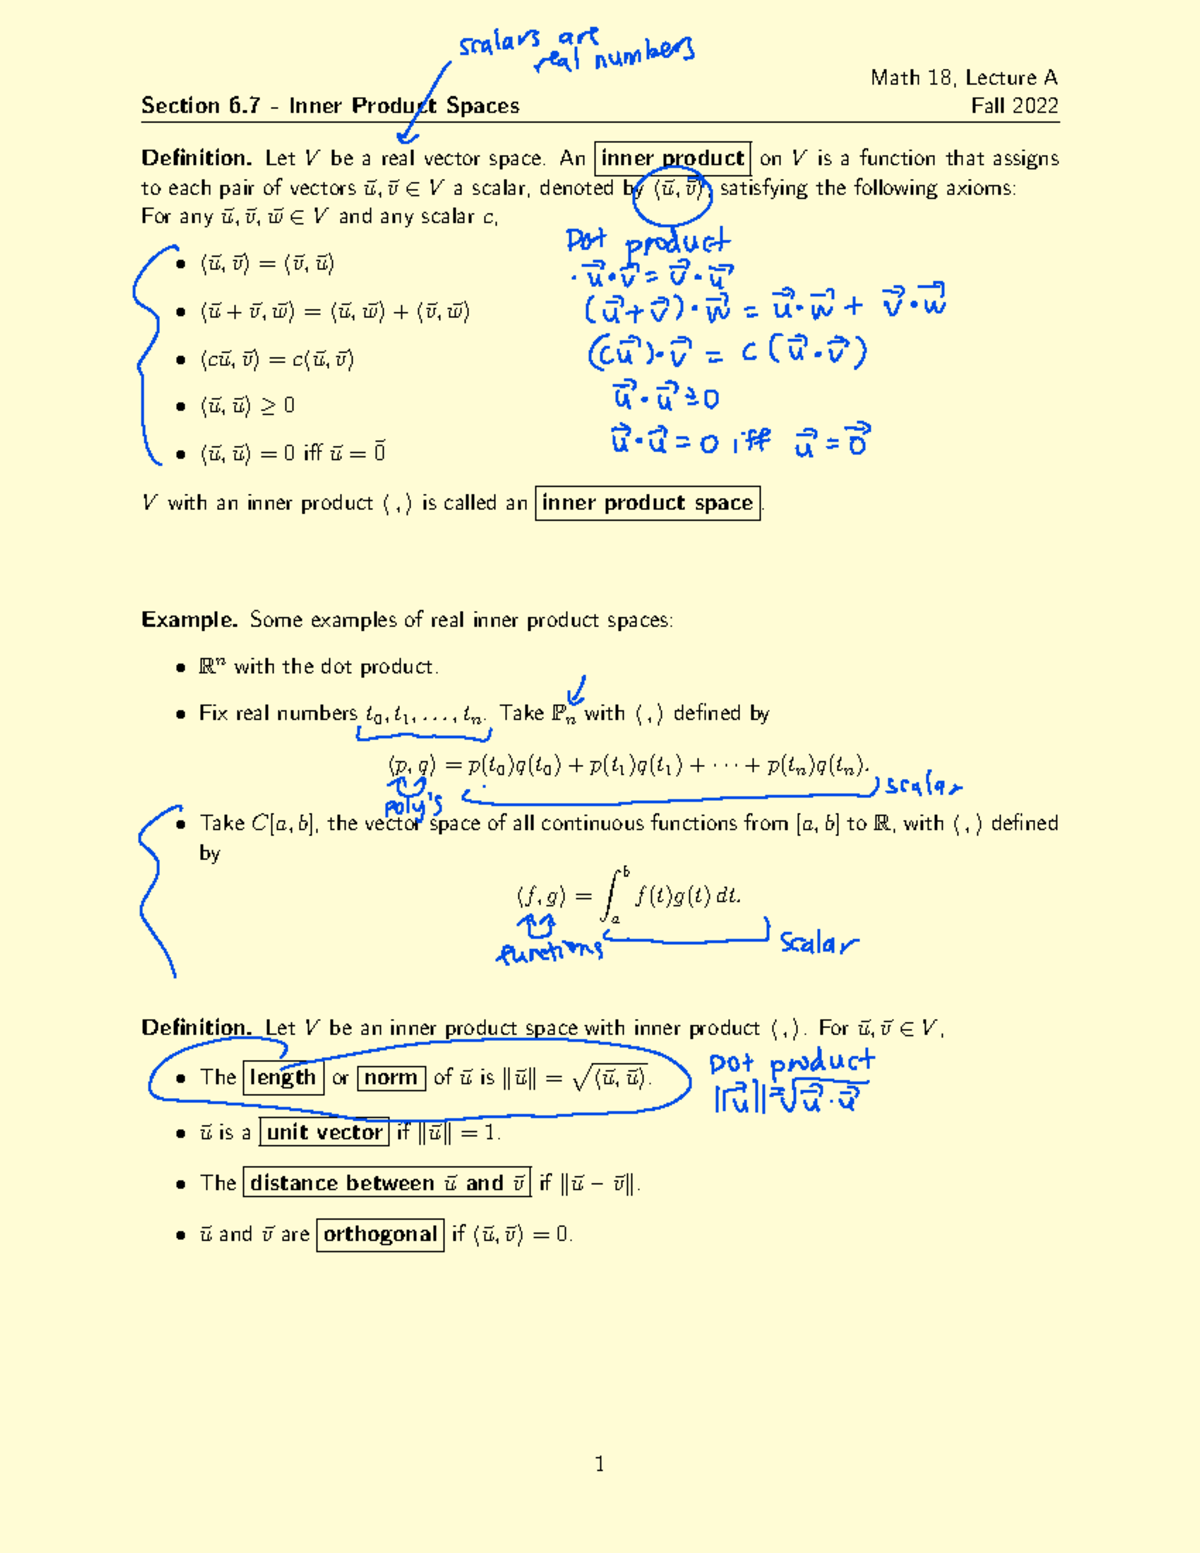 scalars are
real numbers
Math 18, Lecture A
Section 6.7 - Inner Product Spaces
Fall 2022
Definition. Let V be a real vector space. An inner product on V is a function that assigns
to each pair of vectors u⃗, v⃗ ∈ V a scalar, denoted by ⟨u⃗, v⃗⟩, satisfying the following axioms:
For any u⃗, v⃗, w⃗ ∈ V and any scalar c,
• ⟨u⃗, v⃗⟩ = ⟨v⃗, u⃗⟩
• ⟨u⃗ + v⃗, w⃗⟩ = ⟨u⃗, w⃗⟩ + ⟨v⃗, w⃗⟩
• ⟨cu⃗, v⃗⟩ = c⟨u⃗, v⃗⟩
• ⟨u⃗, u⃗⟩ ≥ 0
• ⟨u⃗, u⃗⟩ = 0 iff u⃗ = 0⃗
Dot product
· u⃗·v⃗ = v⃗·u⃗
(u⃗+v⃗)·w⃗ = u⃗·w⃗ + v⃗·w⃗
(cu⃗)·v⃗ = c(u⃗·v⃗)
u⃗·u⃗ ≥ 0
u⃗·u⃗ = 0 iff u⃗ = 0⃗
V with an inner product ⟨ , ⟩ is called an inner product space.
Example. Some examples of real inner product spaces:
• ℝⁿ with the dot product.
• Fix real numbers t₀, t₁, . . . , tₙ. Take ℙₙ with ⟨ , ⟩ defined by
⟨p, q⟩ = p(t₀)q(t₀) + p(t₁)q(t₁) + · · · + p(tₙ)q(tₙ).
poly's
scalar
• Take C[a, b], the vector space of all continuous functions from [a, b] to ℝ, with ⟨ , ⟩ defined
by
⟨f, g⟩ = ∫ₐᵇ f(t)g(t) dt.
functions
scalar
Definition. Let V be an inner product space with inner product ⟨ , ⟩. For u⃗, v⃗ ∈ V,
• The length or norm of u⃗ is ‖u⃗‖ = √⟨u⃗, u⃗⟩.
Dot product
‖u⃗‖=√u⃗·u⃗
• u⃗ is a unit vector if ‖u⃗‖ = 1.
• The distance between u⃗ and v⃗ if ‖u⃗ − v⃗‖.
• u⃗ and v⃗ are orthogonal if ⟨u⃗, v⃗⟩ = 0.
1